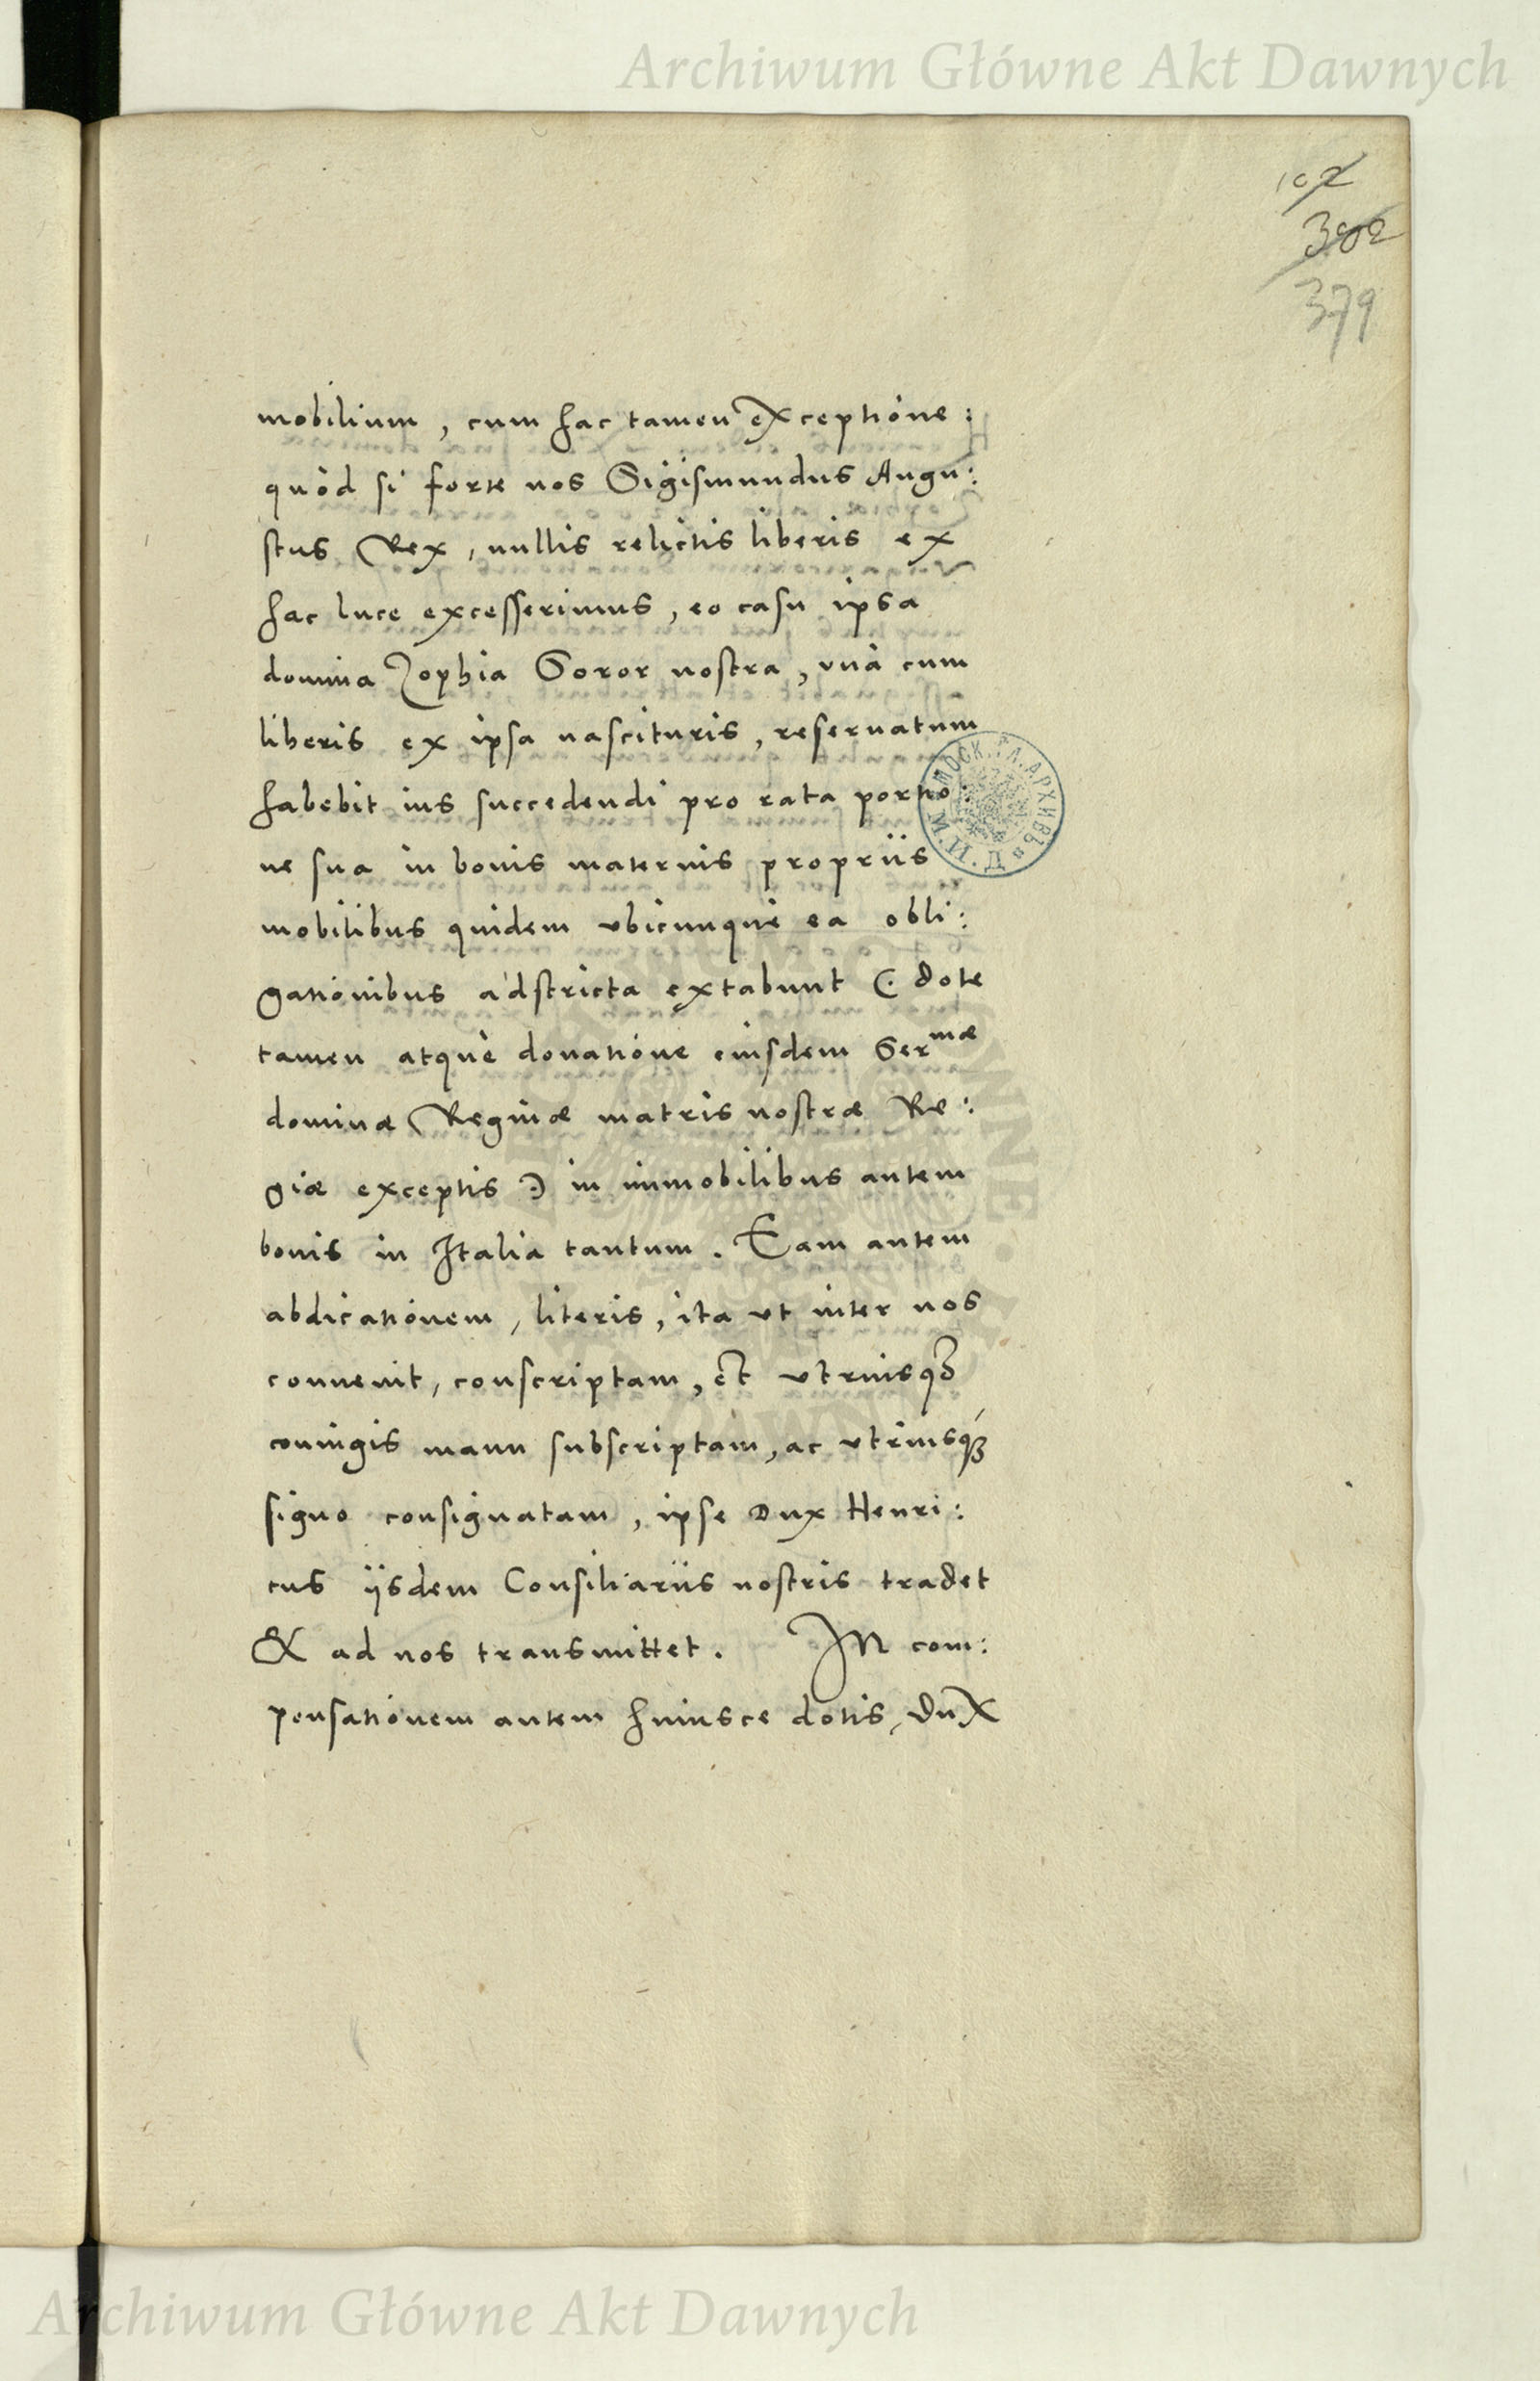 Archiwum Główne Akt Dawnych
102
302
379
mobilium, cum hac tamen exceptione:
quòd si forte nos Sigismundus Augu:
stus Rex, nullis relictis liberis ex
hac luce excesserimus, eo casu ipsa
domina Zophia Soror nostra, vnà cum
liberis ex ipsa nascituris, reseruatum
habebit ius succedendi pro rata portio:
ne sua in bonis maternis propriis
mobilibus quidem vbicunque ea obli:
gationibus adstricta extabunt (: dote
tamen atque donatione eiusdem Sermae
dominæ Reginæ matris nostræ Re:
giæ exceptis :) in immobilibus autem
bonis in Italia tantum. Eam autem
abdicationem, literis, ita vt inter nos
conuenit, conscriptam, et vtriusq3
coniugis manu subscriptam, ac vtriusq3
signo consignatam, ipse Dux Henri:
cus iisdem Consiliariis nostris tradet
& ad nos transmittet. IN com:
pensationem autem huiusce dotis, Dux
М. ГЛ. АРХИВЪ
Archiwum Główne Akt Dawnych